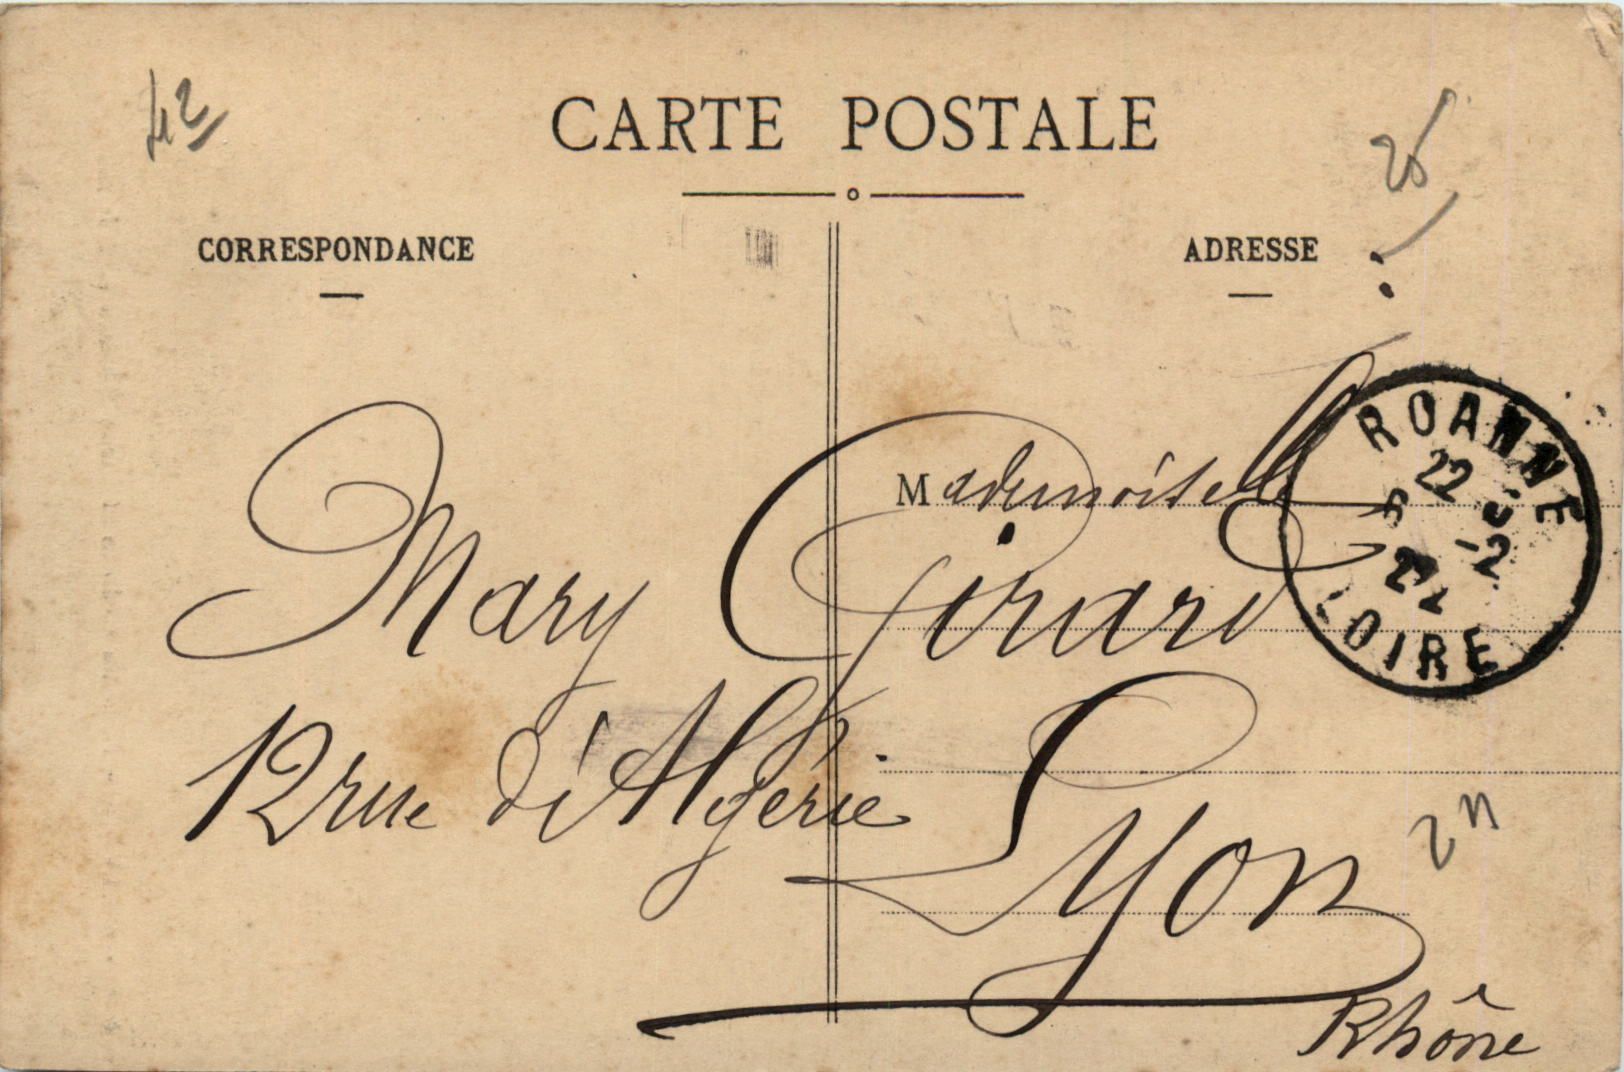 42
CARTE POSTALE
CORRESPONDANCE
ADRESSE
Mademoiselle
Mary Girard
12 rue d'Algérie
Lyon
Rhône
ROANNE
22
-2
22
LOIRE